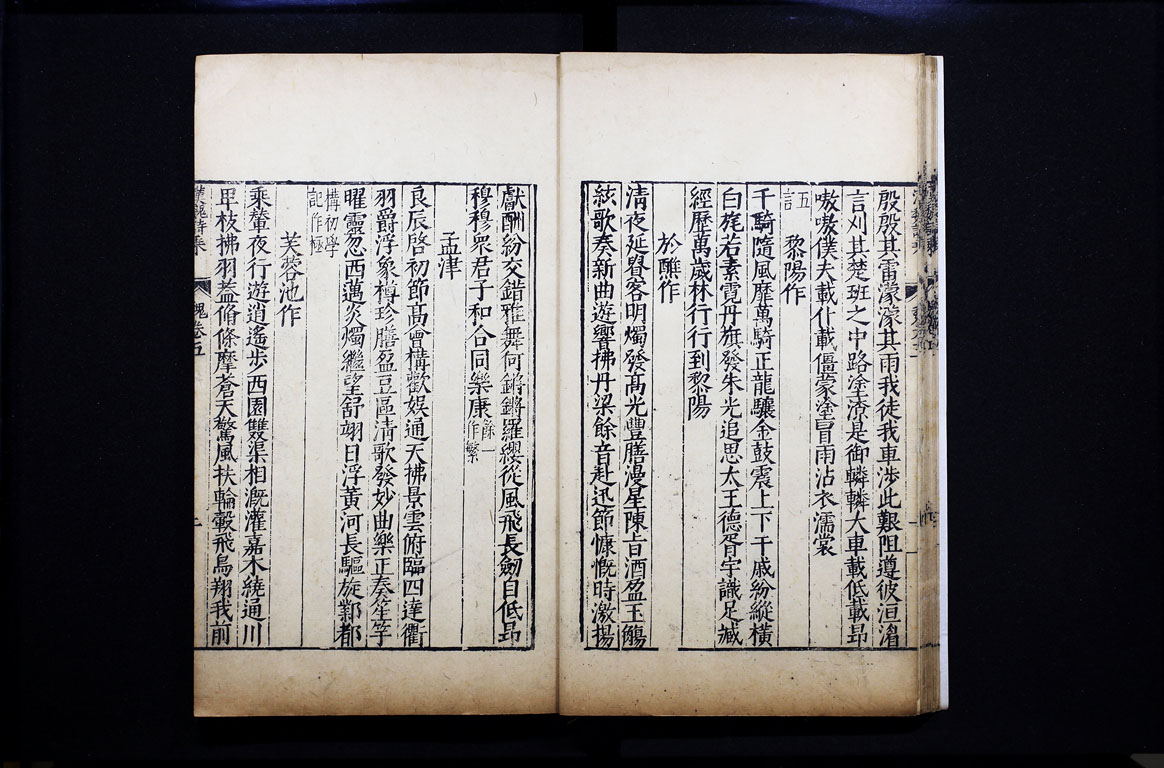 殷殷其雷濛濛其雨我徒我車涉此艱阻遵彼洹湻
言刈其楚班之中路塗潦是御轔轔大車載低載昻
嗷嗷僕夫載仆載僵蒙塗冒雨沾衣濡裳
五言
黎陽作
千騎隨風靡萬騎正龍驤金鼓震上下干戚紛縱橫
白旄若素霓丹旗發朱光追思太王德胥宇識足臧
經歷萬歲林行行到黎陽
於譙作
清夜延賓客明燭發高光豐膳漫星陳旨酒盈玉觴
絃歌奏新曲遊響拂丹梁餘音赴迅節慷慨時激揚
獻酬紛交錯雅舞何鏘鏘羅纓從風飛長劒自低昻
穆穆衆君子和合同樂康
一作繁
孟津
良辰啓初節高會構歡娛通天拂景雲俯臨四達衢
羽爵浮象樽珍膳盈豆區清歌發妙曲樂正奏笙竽
曜靈忽西邁炎燭繼望舒翊日浮黃河長驅旋鄴都
構初學
記作極
芙蓉池作
乘輦夜行遊逍遙步西園雙渠相溉灌嘉木繞通川
卑枝拂羽蓋脩條摩蒼天驚風扶輪轂飛鳥翔我前
漢魏詩集
魏卷五
二